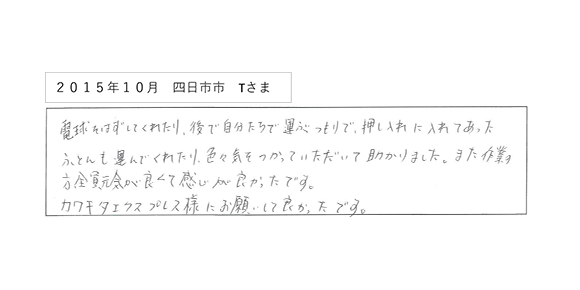 2015年10月 四日市市 Tさま
電球をはずしてくれたり、後で自分たちで運ぶつもりで、押し入れに入れてあった
ふとんも運んでくれたり、色々気をつかっていただいて助かりました。また作業する
方全員元気が良くて感じが良かったです。
カワキタエクスプレス様にお願いして良かったです。